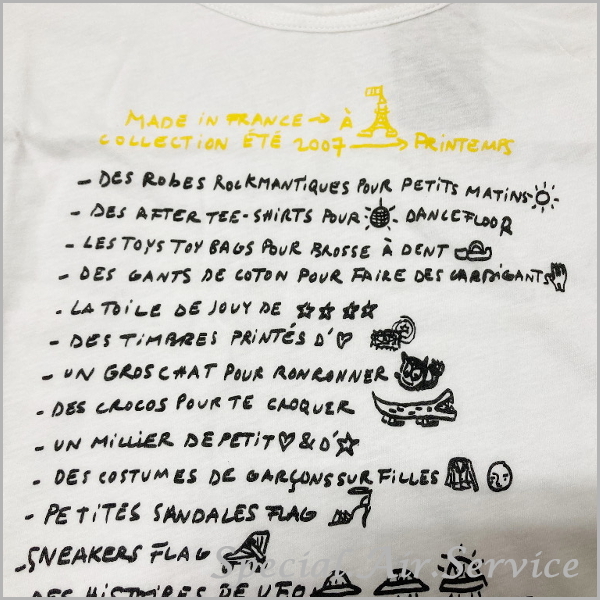 MADE IN FRANCE → À
COLLECTION ÉTÉ 2007 → PRINTEMPS
- DES ROBES ROCKMANTIQUES POUR PETITS MATINS
- DES AFTER TEE-SHIRTS POUR - DANCEFLOOR
- LES TOYS TOY BAGS POUR BROSSE À DENT
- DES GANTS DE COTON POUR FAIRE DES CARDIGANTS
- LA TOILE DE JOUY DE ☆☆☆☆
- DES TIMBRES PRINTÉS D'♡
- UN GROS CHAT POUR RONRONNER
- DES CROCOS POUR TE CROQUER
- UN MILLIER DE PETIT ♡ & D'☆
- DES COSTUMES DE GARÇONS SUR FILLES
- PETITES SANDALES FLAG
- SNEAKERS FLAG
DES HISTOIRES DE UFO
Special Air Service